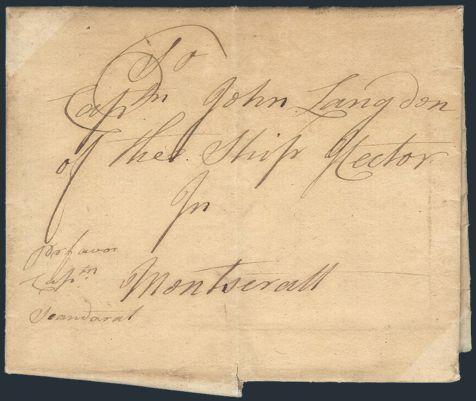 To
Capn. John Langdon
of thee Ship Hector
In
Montseratt
Pr favor
Capn.